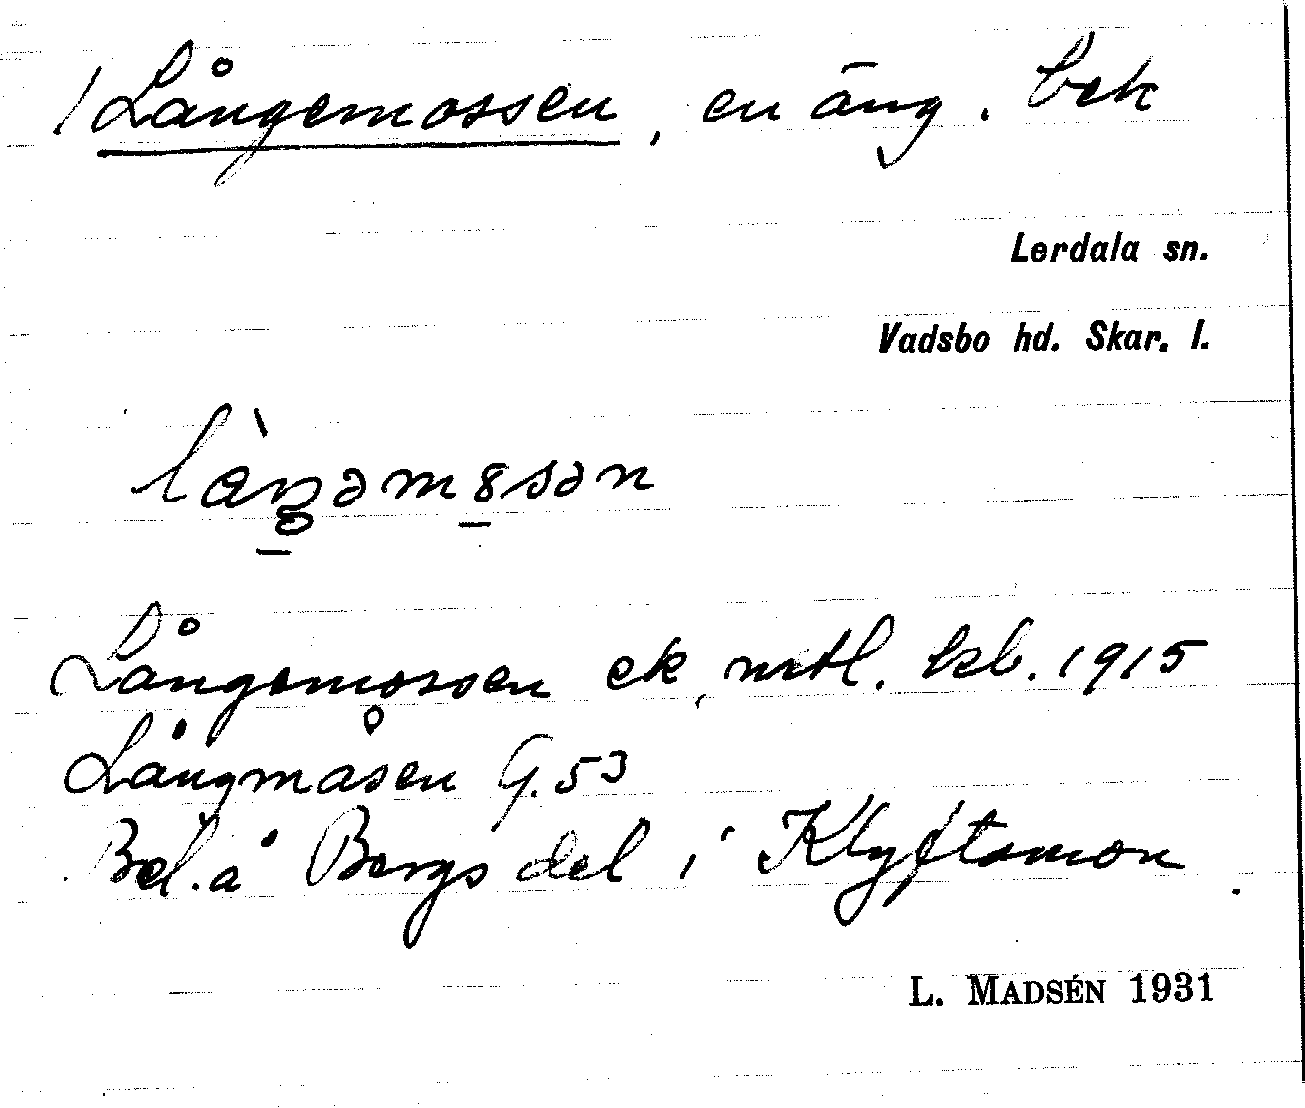 / Långemossen, en äng. bek
Lerdala sn.
Vadsbo hd. Skar. l.
Långemossen ek, mtl. kb. 1915
Långmåsen G. 53
Bel. å Bergs del i Klyftamon.
L. MADSÉN 1931